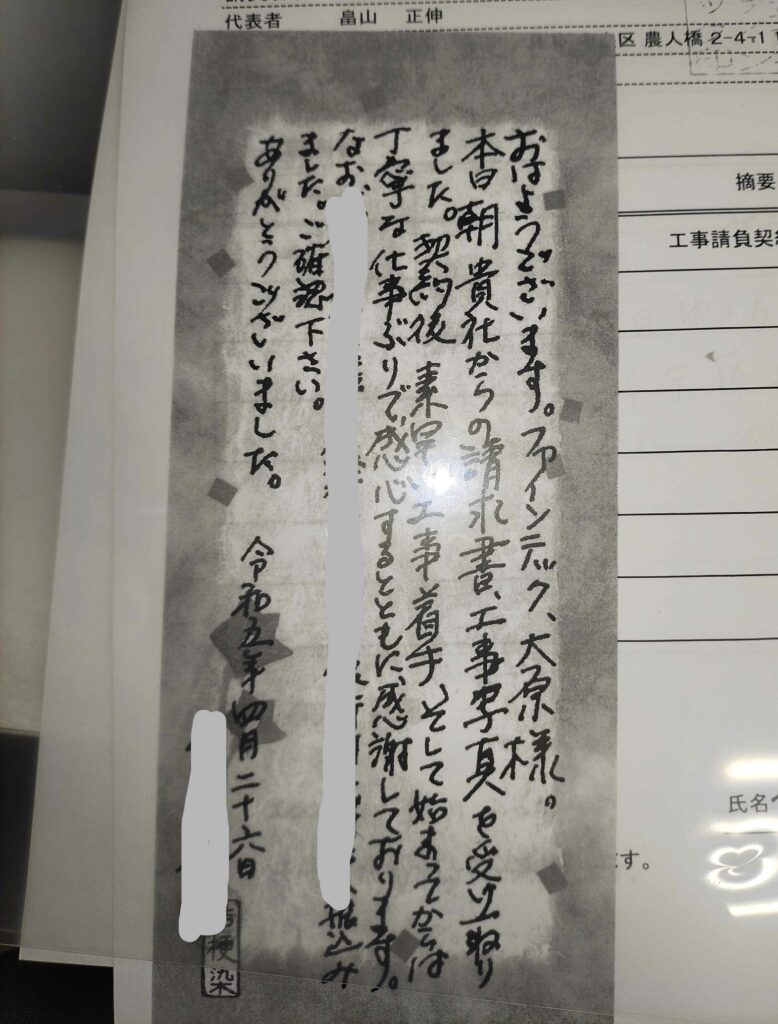 代表者 畠山 正伸
区 農人橋 2-4-1
摘要
工事請負契約
氏名
す。
おはようございます。ファインテック、大原様。
本日朝貴社からの請求書、工事写真を受け取り
ました。契約後 素早い工事着手、そして始まってからは
丁寧な仕事ぶりで、感心するとともに、感謝しております。
なお、 振込み
ました。ご確認下さい。
ありがとうございました。
令和五年四月二十六日
桔梗染